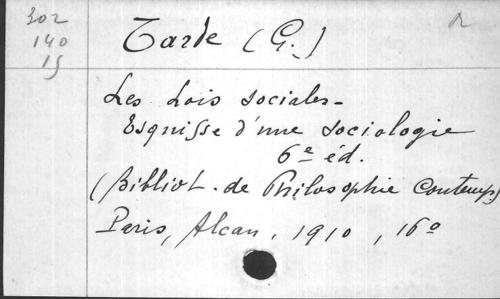 302
140
15
Tarde (G.)
Les Lois sociales -
Esquisse d'une sociologie
6e éd.
(Bibliot. de Philosophie Contemp)
Paris, Alcan, 1910, 16°